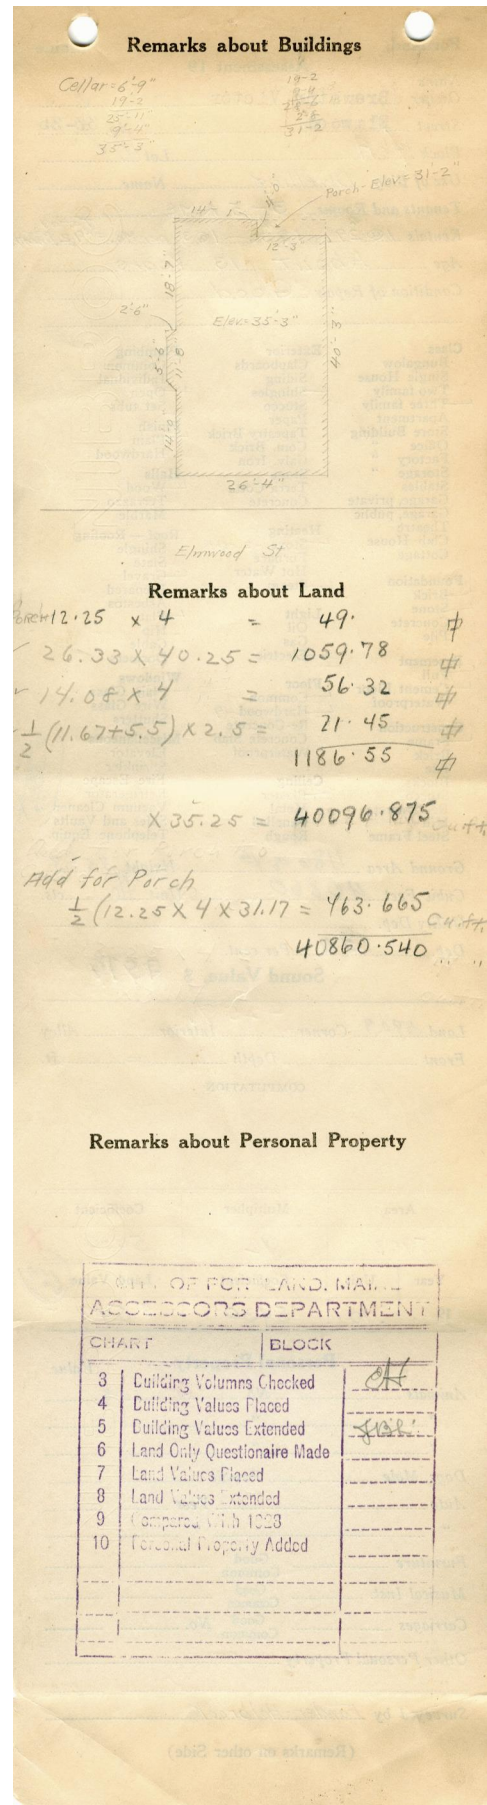 Remarks about Buildings
Cellar = 6'-9"
19-2
25'-11"
9'-4"
35'-3"
19-2
31-2
Porch - Elev = 31'-2"
4'-0"
14'- 1"
12'-3"
18'-9"
2'6"
Elev = 35'-3"
40'-3"
5'-6"
11'-8
14'-9
26'-4"
Elmwood St
Remarks about Land
PORCH 12.25 x 4 = 49.
26.33 X 40.25 = 1059.78
14.08 X 4 = 56.32
1/2 (11.67+5.5) X 2.5 = 21.45
1186.55
X 35.25 = 40096.875 Cu.ft.
Add for Porch
1/2 (12.25 X 4 X 31.17 = 463.665 Cu.ft.
40860.540 " "
Remarks about Personal Property
CITY OF PORTLAND, MAINE
ASSESSORS DEPARTMENT
CHART BLOCK
3 Building Volumns Checked
4 Building Values Placed
5 Building Values Extended
6 Land Only Questionaire Made
7 Land Values Placed
8 Land Values Extended
9 Compared With 1928
10 Personal Property Added